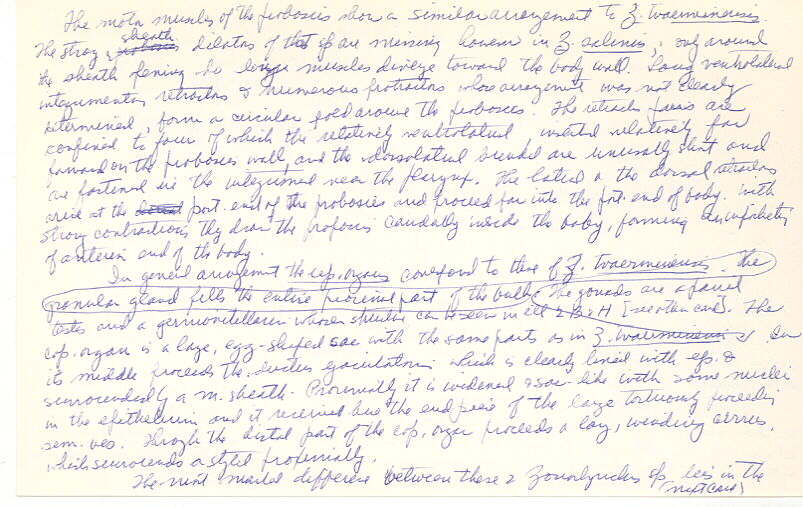 The motor muscles of the proboscis show a similar arrangement to Z. tvaerminensis.
The strong, sheath dilators of that sp are missing however in Z. salinus; only around
the sheath opening do large muscles diverge toward the body wall. Long ventrolateral
integumentary retractors & numerous protractors whose arrangement was not clearly
determined, form a circular fold around the proboscis. The retractors are
confined to four of which the relatively ventrolateral inserted relatively far
forward on the proboscis wall, and the dorsolateral bundles are unusually short and
are fastened in the integument near the pharynx. The lateral & the dorsal retractors
arise at the post. end of the proboscis and proceed far into the post. end of body. With
strong contractions they draw the proboscis caudally inside the body, forming
of anterior end of the body.
In general arrangement the rep. organs correspond to those of Z. tvaerminensis. The
granular gland fills the entire proximal part of the bulb. The gonads are a paired
testes and a germovitellarium whose structure can be seen in all 2 B & H [see other card]. The
cop. organ is a large, egg-shaped sac with the same parts as in Z. tvaerminensis. In
its middle proceeds the ductus ejaculatorius which is clearly lined with ep. &
surrounded by a m. sheath. Proximally it is widened & sac-like with some nuclei
in the epithelium and it received here the end piece of the large tortuously proceeding
sem. ves. Through the distal part of the cop. organ proceeds a long, winding cirrus,
which surrounds a stylet proximally.
The most marked difference between these 2 Zonorhynchus sp. lies in the
(next card)